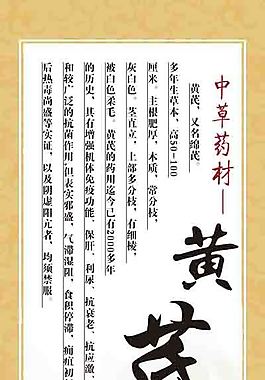 中草药材—
黄芪
黄芪,又名绵芪。
多年生草本,高50-100
厘米。主根肥厚,木质,常分枝,
灰白色。茎直立,上部多分枝,有细棱,
被白色柔毛。黄芪的药用迄今已有2000多年
的历史,其有增强机体免疫功能、保肝、利尿、抗衰老、抗应激、
和较广泛的抗菌作用,但表实邪盛,气滞湿阻,食积停滞,痈疽初
后热毒尚盛等实证,以及阴虚阳亢者,均须禁服。